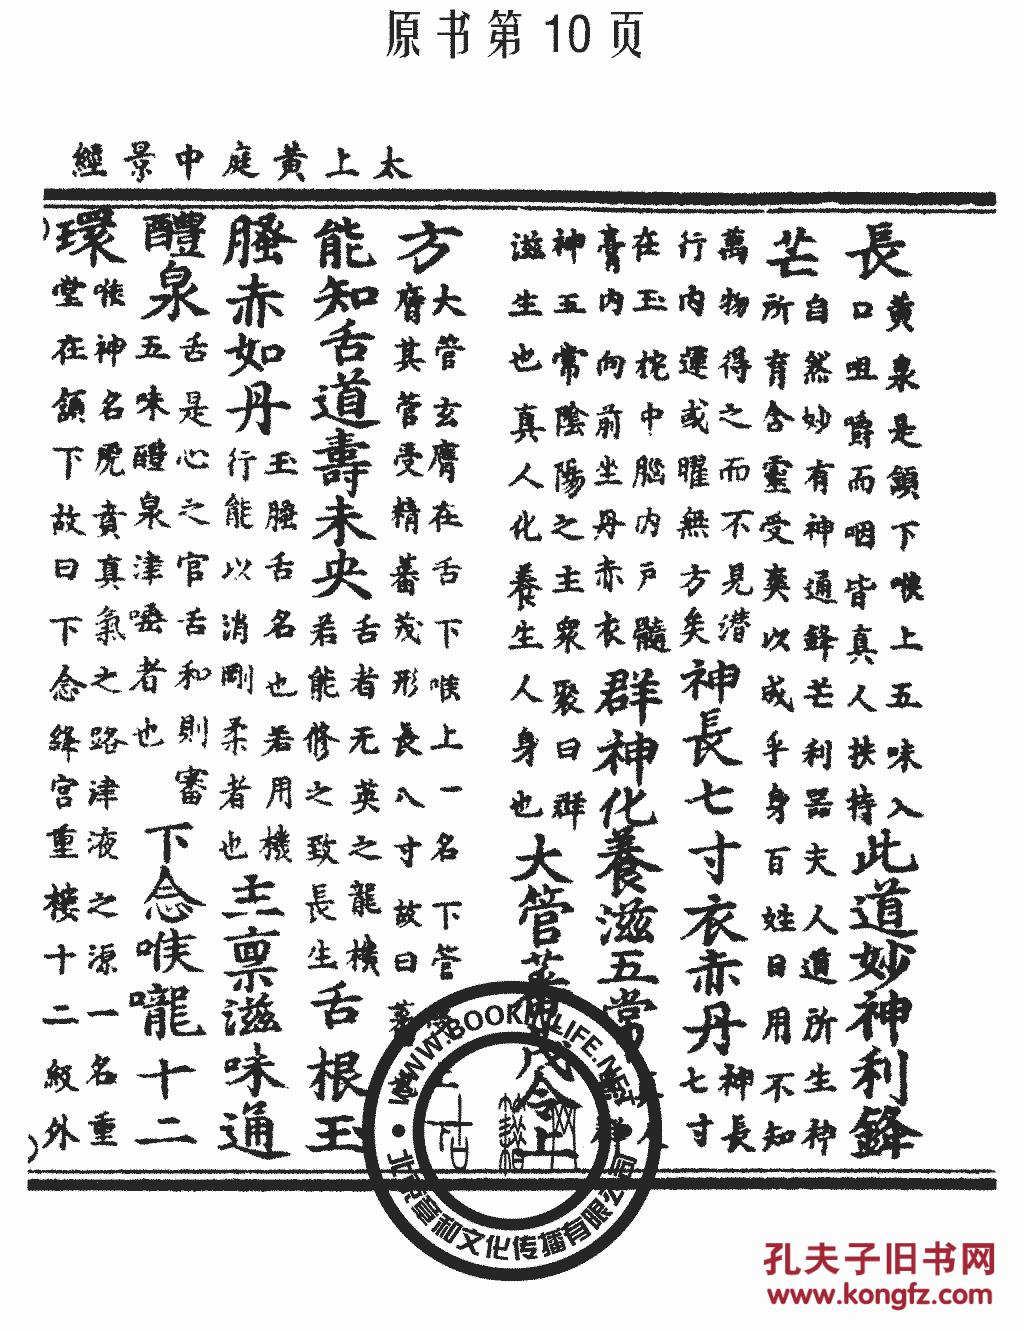 原书第10页
太上黄庭中景經
長黄泉是頷下喉上五味入口咀嚼而咽皆真人扶持此道妙神利鋒
芒自然妙有神通鋒芒利器夫人道所生神所育含靈受爽以成乎身百姓日用不知
萬物得之而不見潜行内運或曜無方矣神長七寸衣赤丹神長七寸
在玉枕中腦内戸髓膏内向前坐丹赤衣群神化養滋五常
神五常陰陽之主衆聚曰群滋生也真人化養生人身也大管蕃茂令上
方大管玄膺在舌下喉上一名下管膺其管受精蕃茂形長八寸故曰
能知舌道壽未央舌者无英之龍横若能修之致長生舌根玉
騷赤如丹玉騷舌名也若用機行能以消剛柔者也主禀滋味通
醴泉舌是心之官舌和則審五味醴泉津嚥者也下念喉嚨十二
環喉神名虎賁真氣之路津液之源一名重堂在頷下故曰下念絳宫重樓十二級外
WWW.BOOKINLIFE.NET
北京章和文化传播有限公司
孔夫子旧书网
www.kongfz.com